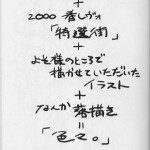 +
2000 春レヴォ
「特選街」
+
よそ様のところで
描かせていただいた
イラスト
+
なんか落描き
=
「色々。」